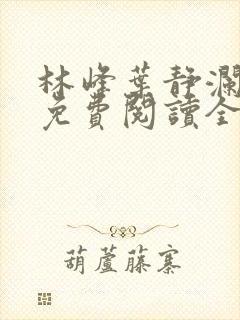 林峰葉静瀾
免費閱讀全
葫蘆藤寨